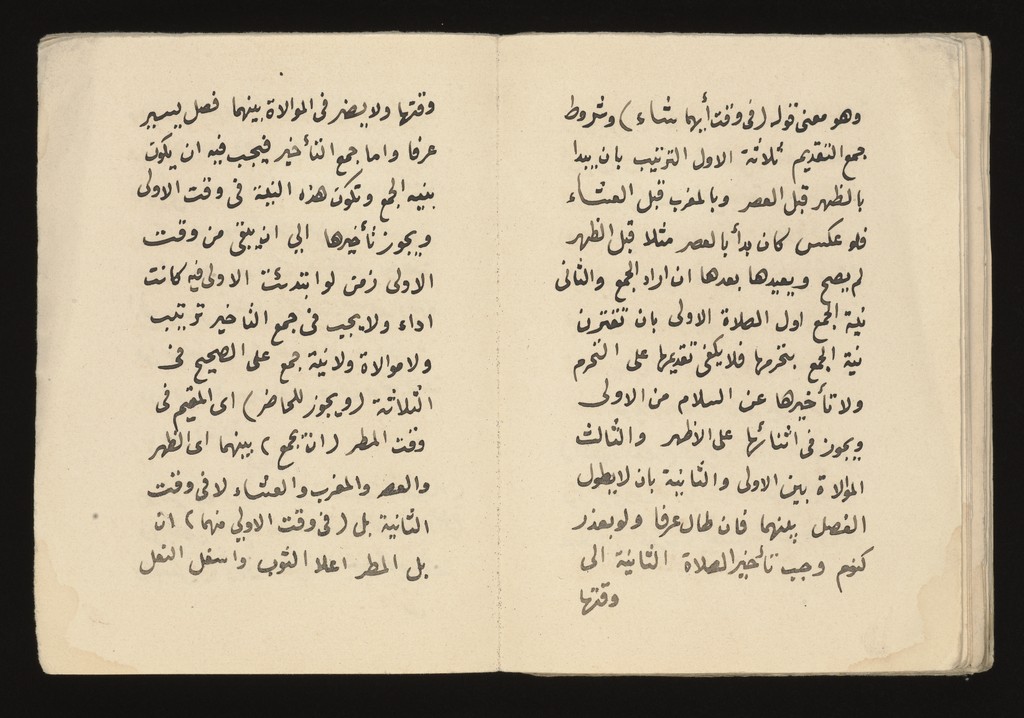 وهو معنى قوله (فى وقت أيهما شاء) وشروط
جمع التقديم ثلاثة الاول الترتيب بان يبدا
بالظهر قبل العصر وبالمغرب قبل العشاء
فلو عكس كان بدأ بالعصر مثلا قبل الظهر
لم يصح ويعيدها بعدها ان اراد الجمع والثانى
نية الجمع اول الصلاة الاولى بان تقترن
نية الجمع بتحرمها فلا يكفى تقديمها على التحرم
ولا تأخيرها عن السلام من الاولى
ويجوز فى اثنائها على الاظهر والثالث
الموالاة بين الاولى والثانية بان لا يطول
الفصل بينهما فان طال عرفا ولو بعذر
كنوم وجب تأخير الصلاة الثانية الى
وقتها
وقتها ولا يضر فى الموالاة بينهما فصل يسير
عرفا واما جمع التأخير فيجب فيه ان يكون
بنيه الجمع وتكون هذه النية فى وقت الاولى
ويجوز تأخيرها الى ان يبقى من وقت
الاولى زمن لو ابتدئت الاولى فيه كانت
اداء ولا يجب فى جمع التأخير ترتيب
ولا موالاة ولا نية جمع على الصحيح فى
الثلاثة (ويجوز للحاضر) اى المقيم فى
وقت المطر (ان يجمع) بينهما اى الظهر
والعصر والمغرب والعشاء لا فى وقت
الثانية بل (فى وقت الاولى منهما) ان
بل المطر اعلا الثوب واسفل النعل